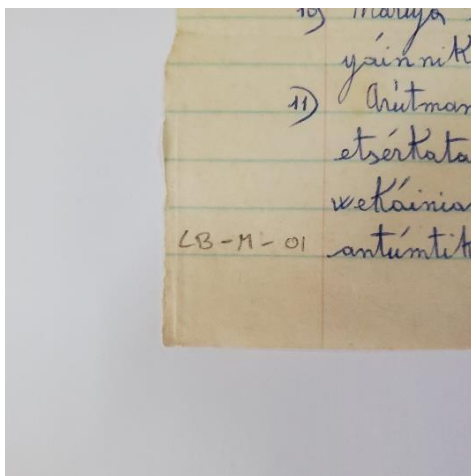 10) Mariya
yáinnik
11) Arútman
etsérkata
wekáinia
LB-M-01 antúmtik